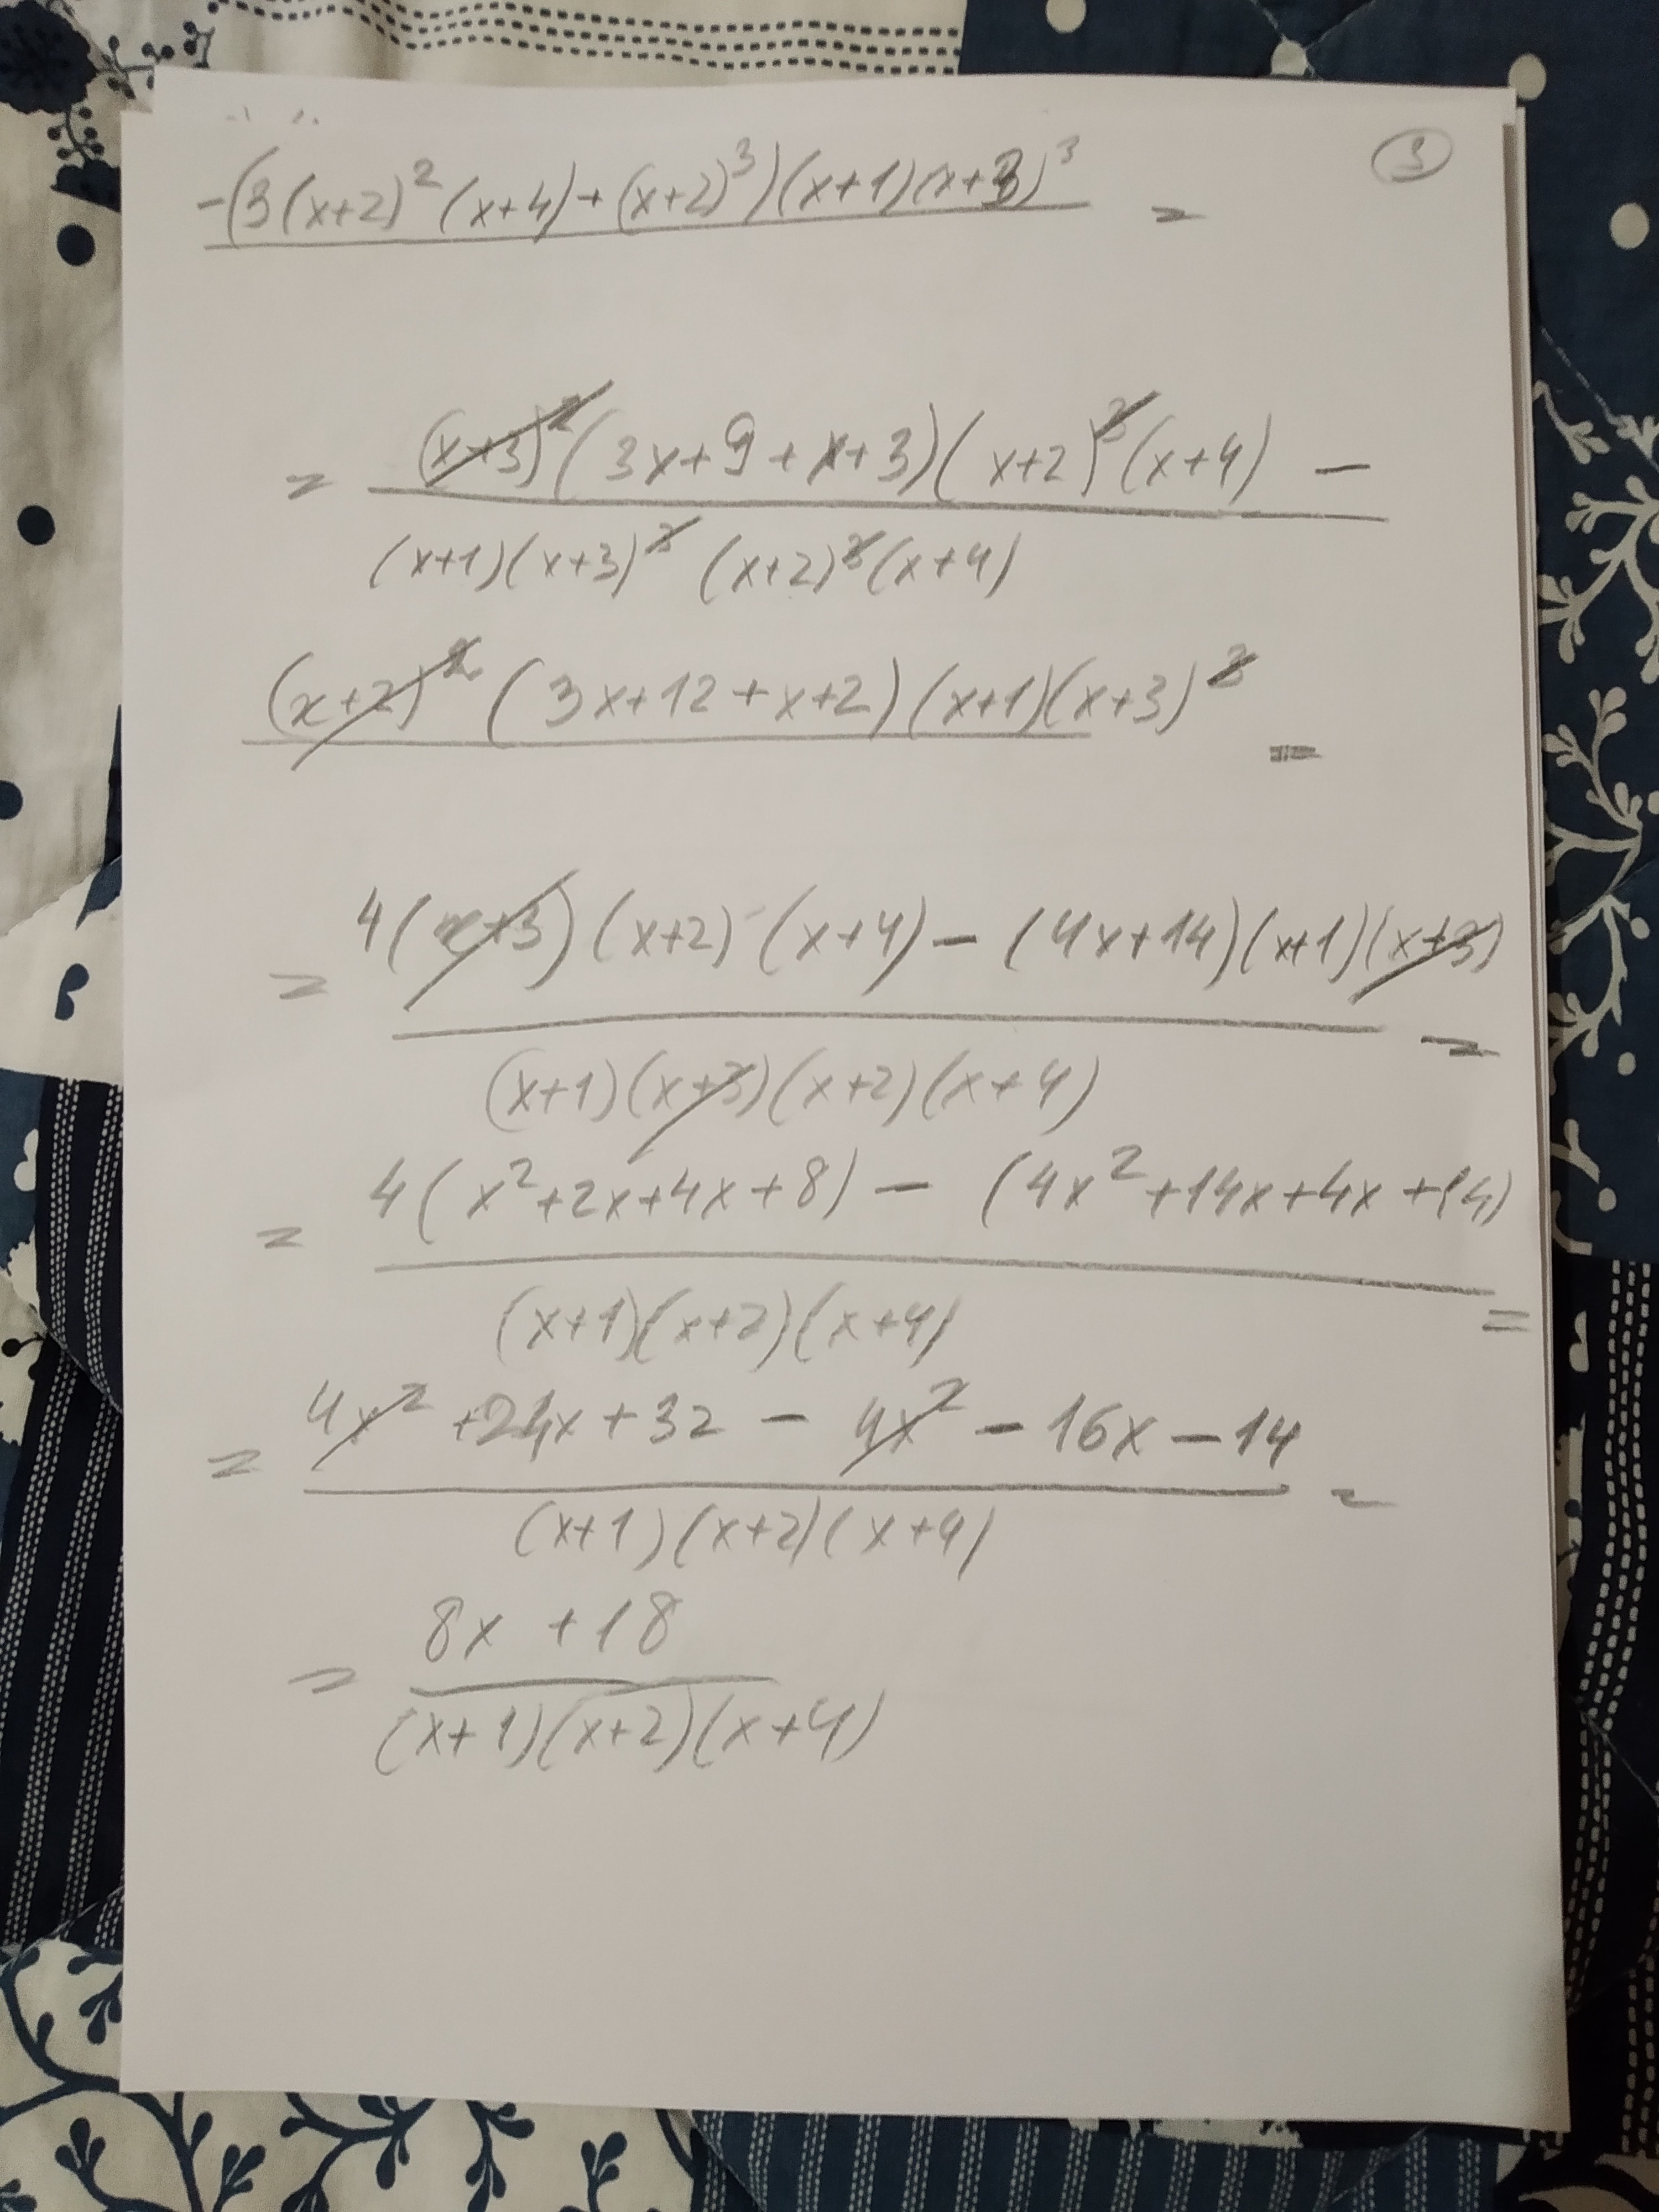 ③
-(3(x+2)²(x+4)+(x+2)³)(x+1)(x+3)³ =
= (x+3)²(3x+9+x+3)(x+2)³(x+4) -
(x+1)(x+3)³ (x+2)³(x+4)
(x+2)² (3x+12+x+2)(x+1)(x+3)³ =
= 4(x+3)(x+2) (x+4) - (4x+14)(x+1)(x+3) =
(x+1)(x+3)(x+2)(x+4)
= 4(x²+2x+4x+8) - (4x²+14x+4x+14) =
(x+1)(x+2)(x+4)
= 4x² +24x+32 - 4x² - 16x - 14 =
(x+1)(x+2)(x+4)
= 8x +18
(x+1)(x+2)(x+4)